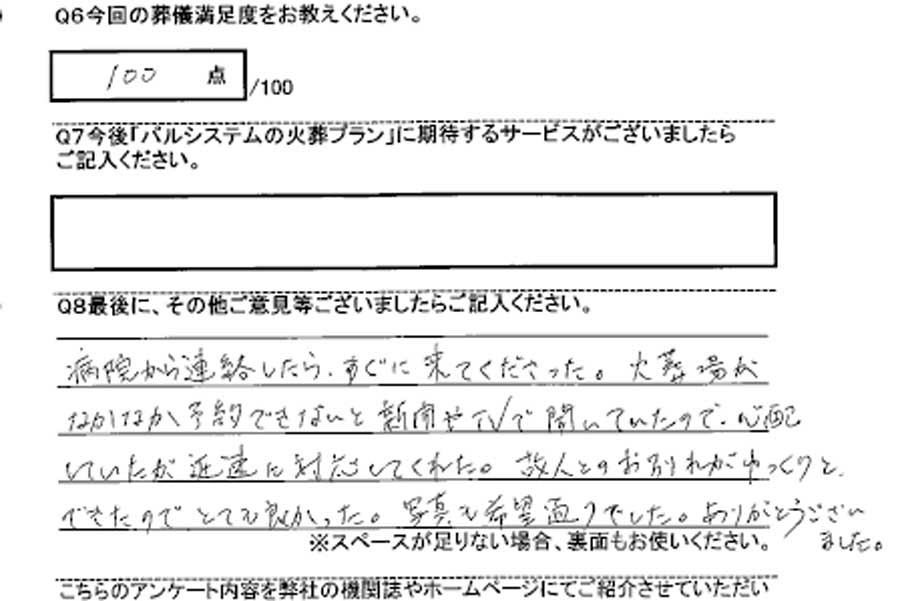 Q6今回の葬儀満足度をお教えください。
100 点 /100
Q7今後「パルシステムの火葬プラン」に期待するサービスがございましたら
ご記入ください。
Q8最後に、その他ご意見等ございましたらご記入ください。
病院から連絡したら、すぐに来てくださった。火葬場が
なかなか予約できないと新聞やTVで聞いていたので、心配
していたが迅速に対応してくれた。故人とのお別れがゆっくりと、
できたのでとても良かった。写真も希望通りでした。ありがとうござい
ました。
※スペースが足りない場合、裏面もお使いください。
こちらのアンケート内容を弊社の機関誌やホームページにてご紹介させていただい